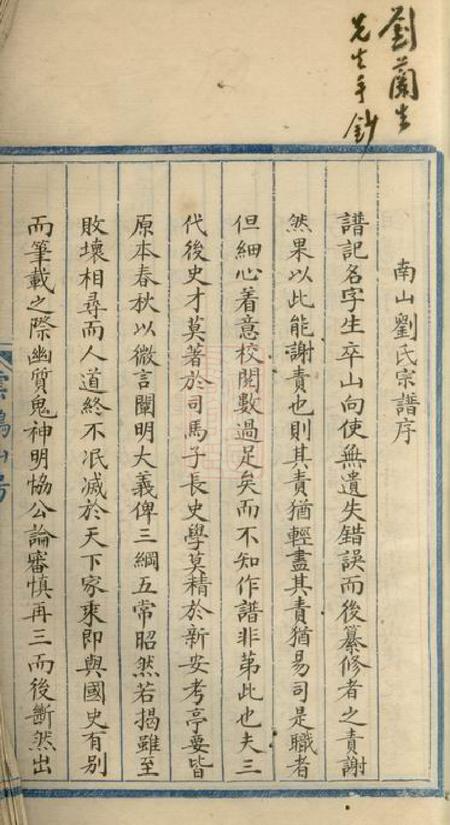 劉蘭生
先生手鈔
南山劉氏宗譜序
譜記名字生卒山向使無遺失錯誤而後纂修者之責謝
然果以此能謝責也則其責猶輕盡其責猶易司是職者
但細心着意校閱數過足矣而不知作譜非第此也夫三
代後史才莫著於司馬子長史學莫精於新安考亭要皆
原本春秋以微言闡明大義俾三綱五常昭然若揭雖至
敗壞相尋而人道終不冺滅於天下家乘即與國史有別
而筆載之際幽質鬼神明恊公論審慎再三而後斷然出